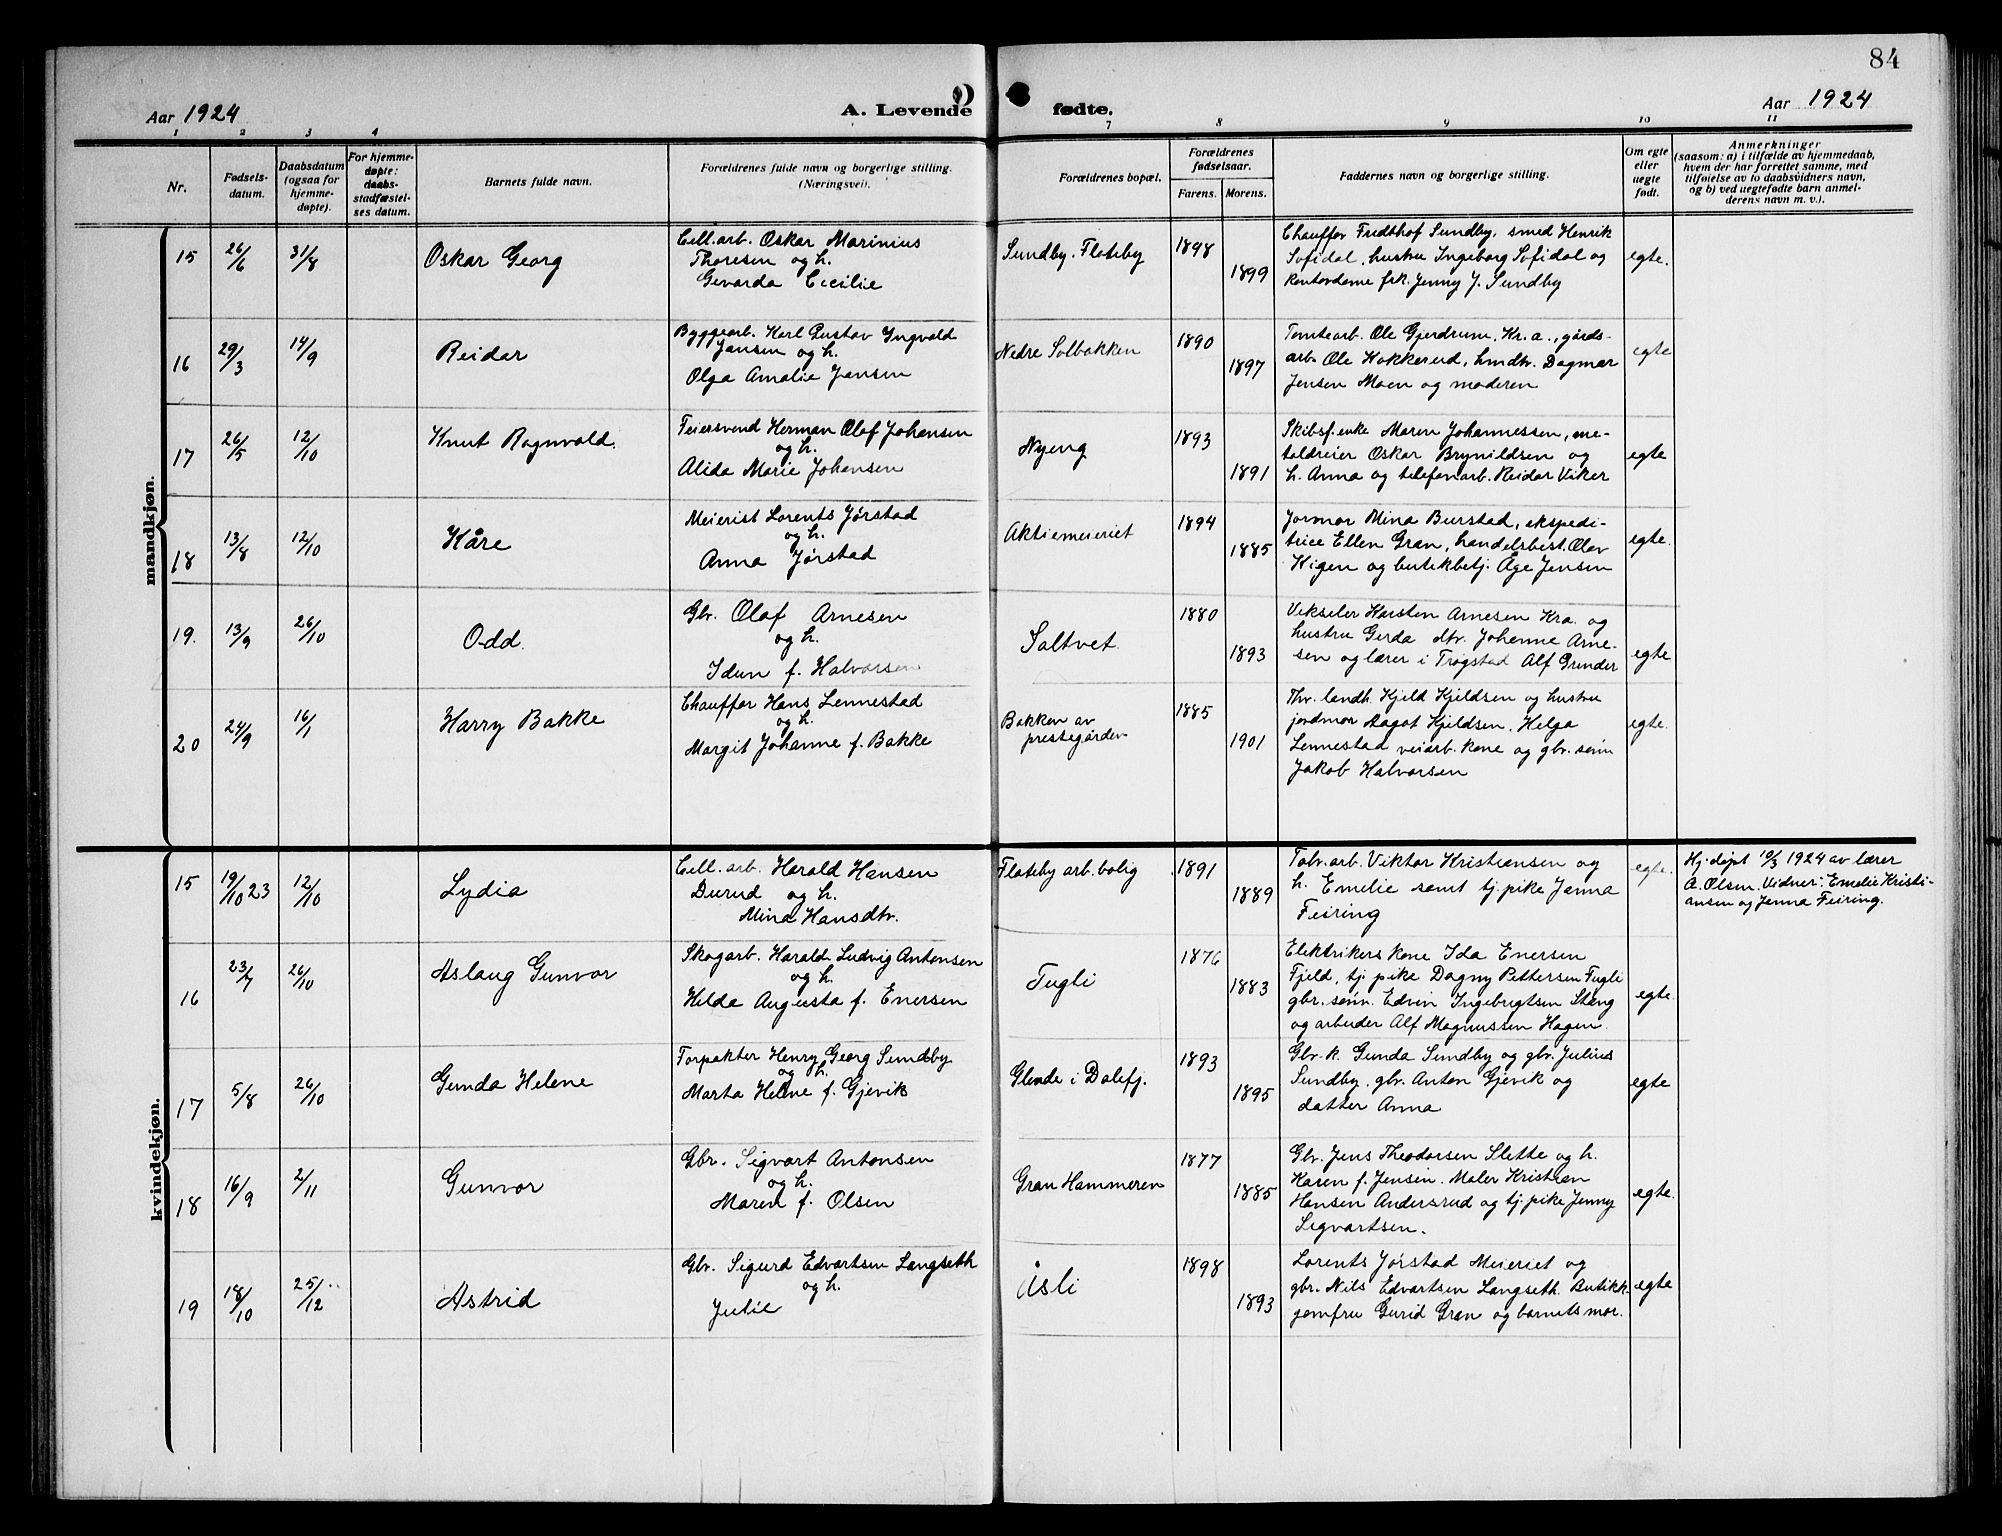 84
Aar 1924
A. Levende fødte.
Aar 1924
1 2 3 4 7 8 9 10 11
Nr.
Fødsels-
datum.
Daabsdatum
(ogsaa for
hjemme-
døpte).
For hjemme-
døpte:
daabs-
stadfæstel-
ses datum.
Barnets fulde navn.
Forældrenes fulde navn og borgerlige stilling.
(Næringsvei).
Forældrenes bopæl.
Forældrenes
fødselsaar.
Farens. Morens.
Faddernes navn og borgerlige stilling.
Om egte
eller
uegte
født.
Anmerkninger
(saasom: a) i tilfælde av hjemmedaab,
hvem der har forrettet samme, med
tilføielse av to daabsvidners navn,
og b) ved uegtefødte barn anmel-
derens navn m. v.).
mandkjøn.
15 26/6 31/8 Oskar Georg
Cell.arb. Oskar Marinius
Thoresen og h.
Gevarda Cecilie
Sundby. Flateby
1898
1899
Chauffør Fridthof Sundby, smed Henrik
Sofidal, hustru Ingeborg Sofidal og
kontordame frk. Jenny J. Sundby
egte.
16 29/3 14/9 Reidar
Byggearb. Karl Gustav Ingvald
Jansen og h.
Olga Amalie Jansen
Nedre Solbakken
1890
1897
Tomtearb. Ole Gjerdrum, Kr.a., gårds-
arb. Ole Hokkerud, hmdtr. Dagmar
Jensen Moen og moderen
egte
17 26/5 12/10 Knut Ragnvald.
Feiersvend Herman Olaf Johansen
og h.
Alida Marie Johansen
Nyeng
1893
1891
Skibsf.enke Maren Johannessen, me-
taldreier Oskar Brynildsen og
h. Anna og telefonarb. Reidar Viker
egte
18 13/8 12/10 Kåre
Meierist Lorents Jørstad
og h.
Anna Jørstad
Aktiemeieriet
1894
1885
Jormor Mina Burstad, ekspedi-
trice Ellen Gran, handelsbest. Olav
Kigen og butikbetj. Åge Jensen
egte.
19. 13/9 26/10 Odd.
Gbr. Olaf Arnesen
og h.
Idun f. Halvorsen
Saltvet.
1880
1893
Vekseler Karsten Arnesen Kra. og
hustru Gerda dtr. Johanne Arne-
sen og lærer i Trøgstad Alf Grinder
egte
20 24/9 16/1 Harry Bakke
Chauffør Hans Lennestad
og h.
Margit Johanne f. Bakke
Bakken av
prestegården
1885
1901
Thv. landh. Kjeld Kjeldsen og hustru
jordmor Aagot Kjeldsen. Helga
Lennestad veiarb. kone og gbr. sønn
Jakob Halvorsen
egte.
kvindekjøn.
15 19/10 23 12/10 Lydia
Cell. arb. Harald Hansen
Durud og h.
Mina Hansdtr.
Flateby arb. bolig
1891
1889
Fabr.arb. Viktor Kristiansen og
h. Emelie samt tj. pike Janna
Feiring
egte.
Hj. døpt 10/3 1924 av lærer
A. Olsen. Vidner: Emelie Kristi-
ansen og Jenna Feiring.
16 23/7 26/10 Aslaug Gunvor
Skogarb. Harald Ludvig Antonsen
og h.
Hilda Augusta f. Enersen
Fugli
1876
1883
Elektrikers kone Ida Enersen
Fjeld, tj. pike Dagny Pettersen Fugli
gbr. sønn. Edvin Ingebrigtsen Steng
og arbeider Alf Magnussen Hagen.
egte.
17 5/8 26/10 Gunda Helene
Forpakter Henry Georg Sundby
og h.
Marta Helene f. Gjevik
Glende i Dalefj.
1893
1895
Gbr. k. Gunda Sundby og gbr. Julius
Sundby, gbr. Anton Gjevik og
datter Anna
egte
18 16/9 2/11 Gunvor
Gbr. Sigvart Antonsen
og h.
Maren f. Olsen
Gran Hammeren
1877
1885
Gbr. Jens Theodorsen Slette og h.
Karen f. Jensen. Maler Kristian
Hansen Andersrud og tj. pike Jenny
Sigvartsen.
egte.
19 18/10 25/12 Astrid
Gbr. Sigurd Edvartsen Langseth
og h.
Julie
Åsli
1898
1893
Lorents Jørstad Meieriet og
gbr. Nils Edvartsen Langseth. Butikk-
jomfru Gurid Gran og barnets mor.
egte